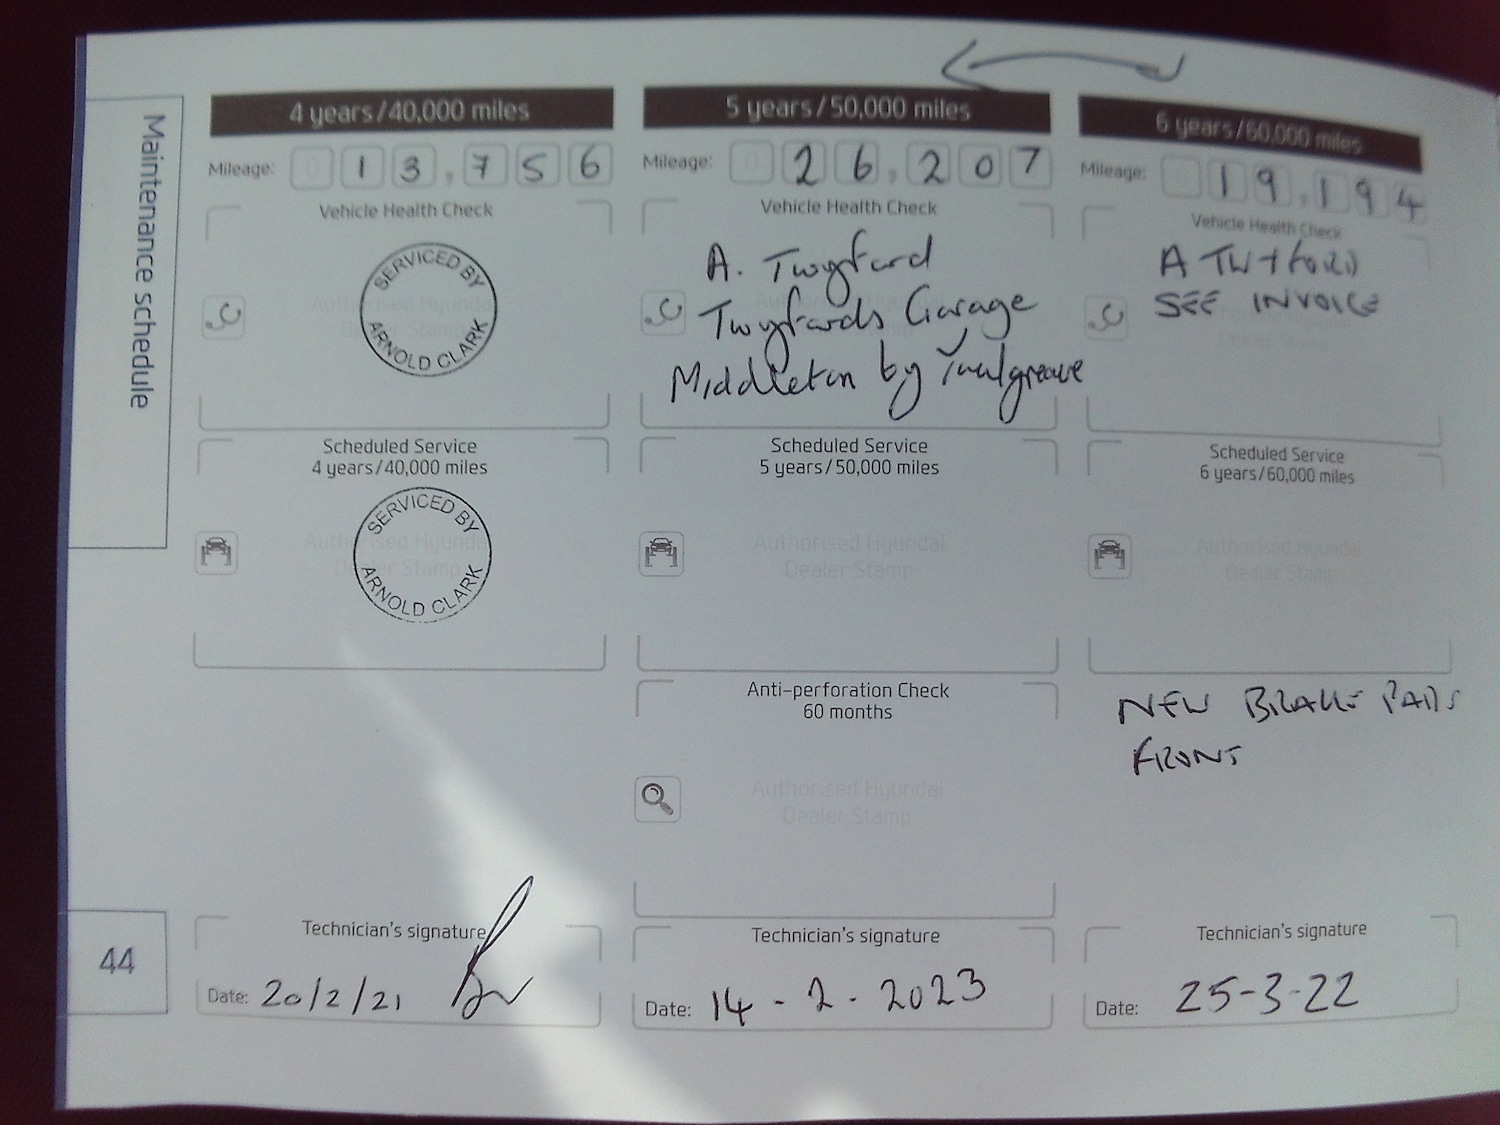 Maintenance schedule
44
4 years/40,000 miles
Mileage: 0 13,756
Vehicle Health Check
SERVICED BY
ARNOLD CLARK
Authorised Hyundai
Dealer Stamp
Scheduled Service
4 years/40,000 miles
SERVICED BY
ARNOLD CLARK
Authorised Hyundai
Dealer Stamp
Technician's signature
Date: 20/2/21
5 years/50,000 miles
Mileage: 0 26,207
Vehicle Health Check
A. Twyford
Twyfords Garage
Middleton by
Scheduled Service
5 years/50,000 miles
Authorised Hyundai
Dealer Stamp
Anti-perforation Check
60 months
Authorised Hyundai
Dealer Stamp
Technician's signature
Date: 14 - 2 - 2023
6 years/60,000 miles
Mileage: 0 19,194
Vehicle Health Check
A TWYFORD
SEE INVOICE
Dealer Stamp
Scheduled Service
6 years/60,000 miles
Authorised Hyundai
Dealer Stamp
NEW BRAKE PADS
FRONT
Technician's signature
Date: 25-3-22